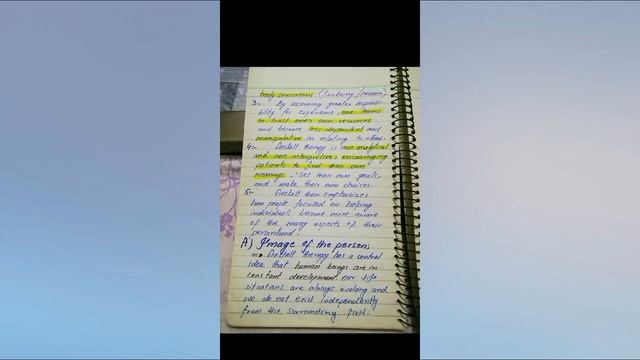 body sensations. (Sensing
3:- By assuming greater responsi-
bility for experience, one learns
to trust one's own resources
and become less dependent and
manipulative in relating to others.
4:- Gestalt therapy is non analytical
and non interpretive; encouraging
patients to find their own
meanings, set their own goals,
and make their own choices.
5:- Gestalt then emphasizes
how people focused on helping
individuals become more aware
of the many aspects of their
personhood.
A) Image of the person;
Gestalt therapy has a central
idea that human beings are in
constant development our life
situations are always evolving and
we do not exist independently
from the surrounding field.